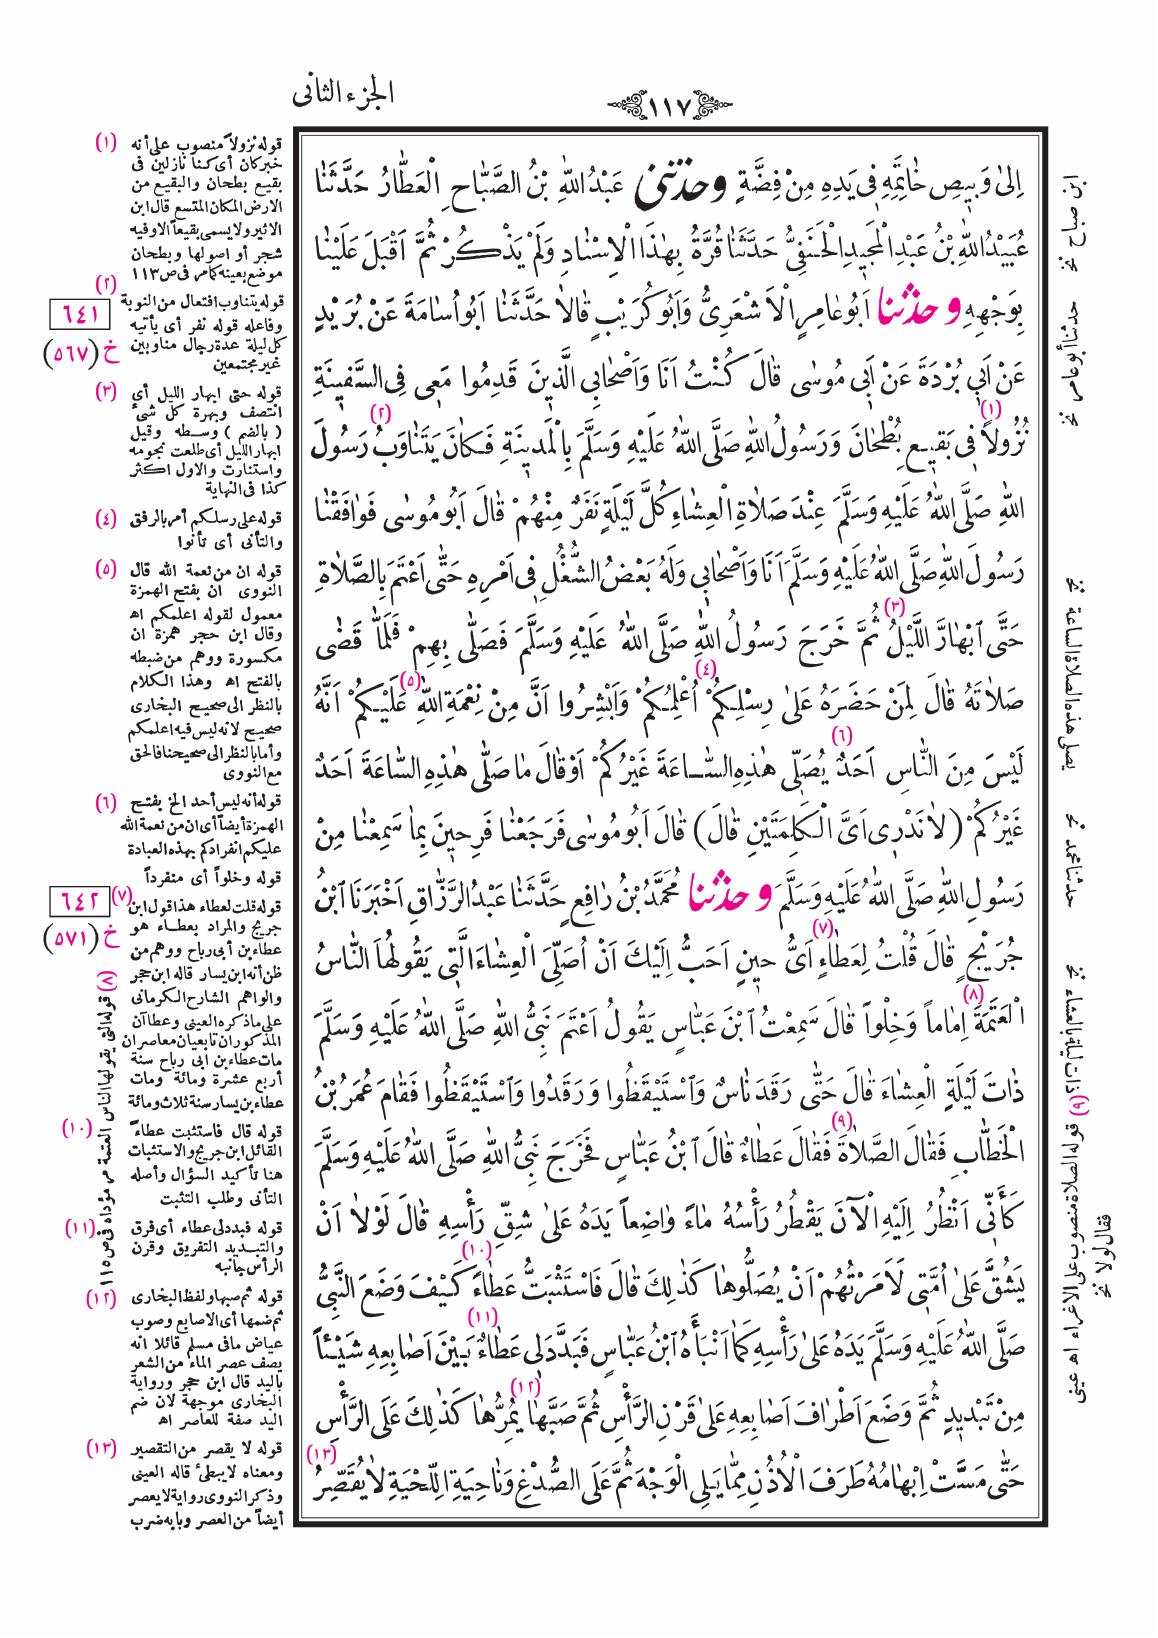 الجزء الثانى
١١٧
اِلىٰ وَبٖيصِ خٰاتِمِهٖ فٖى يَدِهِ مِنْ فِضَّةٍ وحدثنى عَبْدُ اللّٰهِ بْنُ الصَّبّٰاحِ الْعَطّٰارُ حَدَّثَنٰا
عُبَيْدُ اللّٰهِ بْنُ عَبْدِ الْمَجٖيدِ الْحَنَفِىُّ حَدَّثَنٰا قُرَّةُ بِهٰذَا الْاِسْنٰادِ وَلَمْ يَذْكُرْ ثُمَّ اَقْبَلَ عَلَيْنٰا
بِوَجْهِهِ وحدثنا اَبُو عٰامِرٍ الْاَشْعَرِىُّ وَاَبُو كُرَيْبٍ قٰالاٰ حَدَّثَنٰا اَبُو اُسٰامَةَ عَنْ بُرَيْدٍ
عَنْ اَبٖى بُرْدَةَ عَنْ اَبٖى مُوسٰى قٰالَ كُنْتُ اَنَا وَاَصْحٰابِى الَّذٖينَ قَدِمُوا مَعِى فِى السَّفٖينَةِ
نُزُولاً (١) فٖى بَقٖيعِ بُطْحٰانَ وَرَسُولُ اللّٰهِ صَلَّى اللّٰهُ عَلَيْهِ وَسَلَّمَ بِالْمَدٖينَةِ فَكٰانَ يَتَنٰاوَبُ (٢) رَسُولَ
اللّٰهِ صَلَّى اللّٰهُ عَلَيْهِ وَسَلَّمَ عِنْدَ صَلاٰةِ الْعِشٰاءِ كُلَّ لَيْلَةٍ نَفَرٌ مِنْهُمْ قٰالَ اَبُو مُوسٰى فَوٰافَقْنٰا
رَسُولَ اللّٰهِ صَلَّى اللّٰهُ عَلَيْهِ وَسَلَّمَ اَنَا وَاَصْحٰابٖى وَلَهُ بَعْضُ الشُّغْلِ فٖى اَمْرِهِ حَتّٰى اَعْتَمَ بِالصَّلاٰةِ
حَتَّى ابْهٰارَّ اللَّيْلُ (٣) ثُمَّ خَرَجَ رَسُولُ اللّٰهِ صَلَّى اللّٰهُ عَلَيْهِ وَسَلَّمَ فَصَلّٰى بِهِمْ فَلَمّٰا قَضٰى
صَلاٰتَهُ قٰالَ لِمَنْ حَضَرَهُ عَلىٰ رِسْلِكُمْ (٤) اُعْلِمُكُمْ وَاَبْشِرُوا اَنَّ مِنْ نِعْمَةِ اللّٰهِ (٥) عَلَيْكُمْ اَنَّهُ
لَيْسَ مِنَ النّٰاسِ اَحَدٌ (٦) يُصَلّٖى هٰذِهِ السّٰاعَةَ غَيْرُكُمْ اَوْ قٰالَ مٰا صَلّٰى هٰذِهِ السّٰاعَةَ اَحَدٌ
غَيْرُكُمْ (لاٰ نَدْرٖى اَىَّ الْكَلِمَتَيْنِ قٰالَ) قٰالَ اَبُو مُوسٰى فَرَجَعْنٰا فَرِحٖينَ بِمٰا سَمِعْنٰا مِنْ
رَسُولِ اللّٰهِ صَلَّى اللّٰهُ عَلَيْهِ وَسَلَّمَ وحدثنا مُحَمَّدُ بْنُ رٰافِعٍ حَدَّثَنٰا عَبْدُ الرَّزّٰاقِ اَخْبَرَنَا ابْنُ
جُرَيْجٍ قٰالَ قُلْتُ لِعَطٰاءٍ (٧) اَىُّ حٖينٍ اَحَبُّ اِلَيْكَ اَنْ اُصَلِّىَ الْعِشٰاءَ الَّتٖى يَقُولُهَا النّٰاسُ
الْعَتَمَةَ (٨) اِمٰاماً وَخِلْواً قٰالَ سَمِعْتُ ابْنَ عَبّٰاسٍ يَقُولُ اَعْتَمَ نَبِىُّ اللّٰهِ صَلَّى اللّٰهُ عَلَيْهِ وَسَلَّمَ
ذٰاتَ لَيْلَةٍ الْعِشٰاءَ قٰالَ حَتّٰى رَقَدَ نٰاسٌ وَاسْتَيْقَظُوا وَرَقَدُوا وَاسْتَيْقَظُوا فَقٰامَ عُمَرُ بْنُ
الْخَطّٰابِ فَقٰالَ الصَّلاٰةَ (٩) فَقٰالَ عَطٰاءٌ قٰالَ ابْنُ عَبّٰاسٍ فَخَرَجَ نَبِىُّ اللّٰهِ صَلَّى اللّٰهُ عَلَيْهِ وَسَلَّمَ
كَاَنّٖى اَنْظُرُ اِلَيْهِ الْآنَ يَقْطُرُ رَأْسُهُ مٰاءً وٰاضِعاً يَدَهُ عَلىٰ شِقِّ رَأْسِهِ قٰالَ لَوْلاٰ اَنْ
يَشُقَّ عَلىٰ اُمَّتٖى لَاَمَرْتُهُمْ اَنْ يُصَلُّوهٰا كَذٰلِكَ قٰالَ فَاسْتَثْبَتُّ (١٠) عَطٰاءً كَيْفَ وَضَعَ النَّبِىُّ
صَلَّى اللّٰهُ عَلَيْهِ وَسَلَّمَ يَدَهُ عَلىٰ رَأْسِهِ كَمٰا اَنْبَأَهُ ابْنُ عَبّٰاسٍ فَبَدَّدَ لٖى (١١) عَطٰاءٌ بَيْنَ اَصٰابِعِهِ شَيْئاً
مِنْ تَبْدٖيدٍ ثُمَّ وَضَعَ اَطْرٰافَ اَصٰابِعِهِ عَلىٰ قَرْنِ الرَّأْسِ ثُمَّ صَبَّهٰا (١٢) يُمِرُّهٰا كَذٰلِكَ عَلَى الرَّأْسِ
حَتّٰى مَسَّتْ اِبْهٰامُهُ طَرَفَ الْاُذُنِ مِمّٰا يَلِى الْوَجْهَ ثُمَّ عَلَى الصُّدْغِ وَنٰاحِيَةِ اللِّحْيَةِ لاٰ يُقَصِّرُ (١٣)
ابن صباح نخ
حدثنا أبو عامر نخ
يصلى هذه الصلاة الساعة نخ
حدثنا محمد نخ
(٩) قوله الصلاة منصوب على الاغراء اه عينى
فقال لولا نخ
(١) قوله نزولاً منصوب على أنه
خبر كان أى كنا نازلين فى
بقيع بطحان والبقيع من
الارض المكان المتسع قال ابن
الاثير ولا يسمى بقيعاً الا وفيه
شجر أو اصولها وبطحان
موضع بعينه كما مر فى ص ١١٣
(٢) قوله يتناوب افتعال من النوبة
وفاعله قوله نفر أى يأتيه
كل ليلة عدة رجال مناوبين
غير مجتمعين
٦٤١
خ (٥٦٧)
(٣) قوله حتى ابهار الليل أى
انتصف وبهرة كل شئ
(بالضم) وسطه وقيل
ابهار الليل أى طلعت نجومه
واستنارت والاول اكثر
كذا فى النهاية
(٤) قوله على رسلكم أمر بالرفق
والتأنى أى تأنوا
(٥) قوله ان من نعمة الله قال
النووى ان بفتح الهمزة
معمول لقوله اعلمكم اه
وقال ابن حجر همزة ان
مكسورة ووهم من ضبطه
بالفتح اه وهذا الكلام
بالنظر الى صحيح البخارى
صحيح لانه ليس فيه اعلمكم
وأما بالنظر الى صحيحنا فالحق
مع النووى
(٦) قوله أنه ليس أحد الخ بفتح
الهمزة أيضاً أى ان من نعمة الله
عليكم انفرادكم بهذه العبادة
قوله وخلواً أى منفرداً
(٧) قوله قلت لعطاء هذا قول ابن
جريج والمراد بعطاء هو
عطاء بن أبى رباح ووهم من
ظن أنه ابن يسار قاله ابن حجر
والواهم الشارح الكرمانى
على ماذكره العينى وعطاآن
المذكوران تابعيان معاصران
مات عطاء بن أبى رباح سنة
أربع عشرة ومائة ومات
عطاء بن يسار سنة ثلاث ومائة
٦٤٢
خ (٥٧١)
(٨) قوله التى يقولها الناس العتمة مر مؤداه فى ص ١١٥
(١٠) قوله قال فاستثبت عطاءً
القائل ابن جريج والاستثبات
هنا تأكيد السؤال وأصله
التأنى وطلب التثبت
(١١) قوله فبدد لى عطاء أى فرق
والتبديد التفريق وقرن
الرأس جانبه
(١٢) قوله ثم صبها ولفظ البخارى
ثم ضمها أى الاصابع وصوب
عياض مافى مسلم قائلا انه
يصف عصر الماء من الشعر
باليد قال ابن حجر ورواية
البخارى موجهة لان ضم
اليد صفة للعاصر اه
(١٣) قوله لا يقصر من التقصير
ومعناه لا يبطئ قاله العينى
وذكر النووى رواية لا يعصر
أيضاً من العصر وبابه ضرب